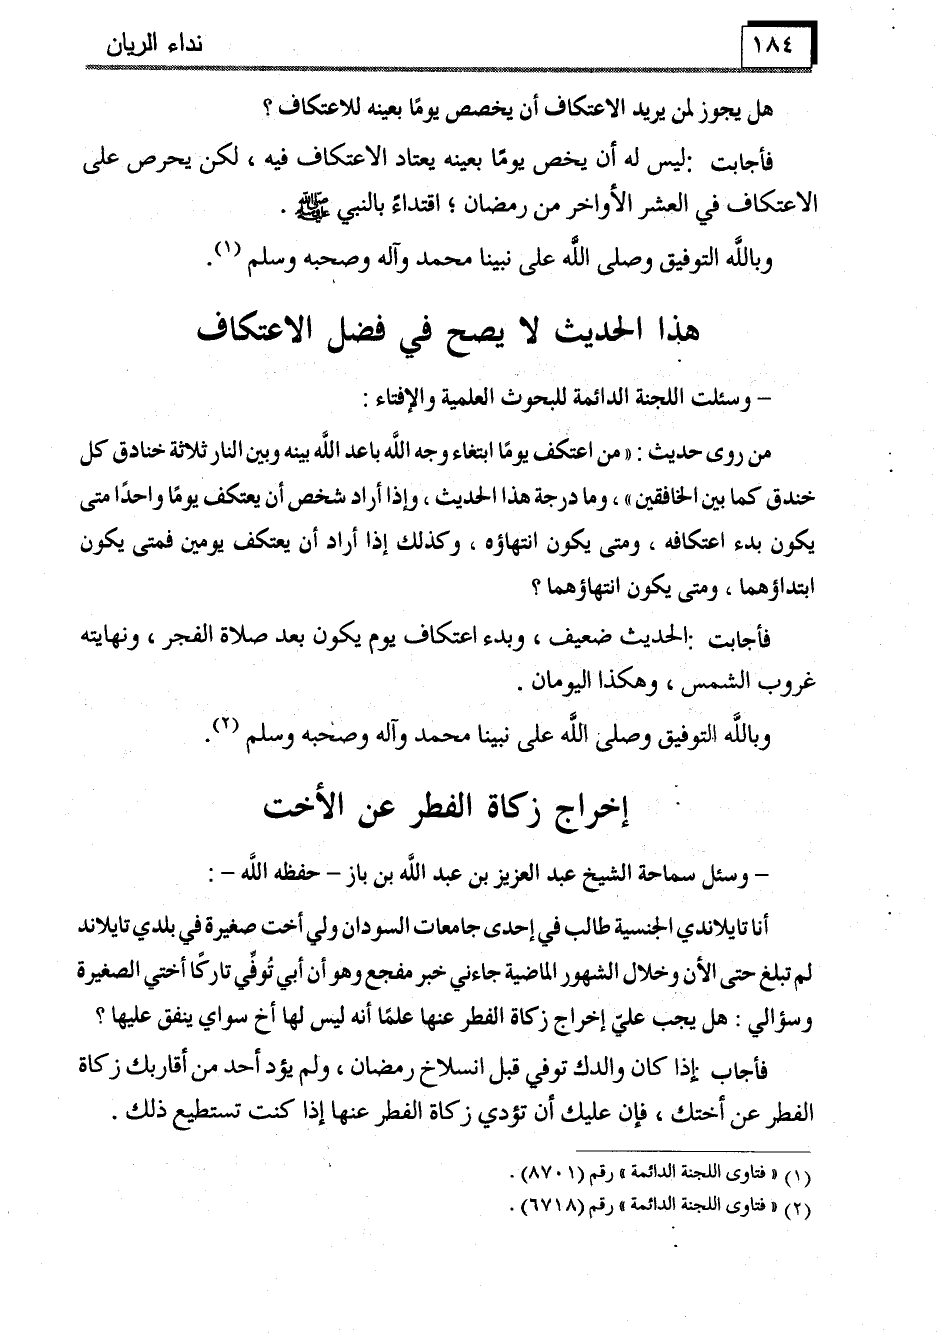 ١٨٤
نداء الريان
هل يجوز لمن يريد الاعتكاف أن يخصص يومًا بعينه للاعتكاف ؟
فأجابت :ليس له أن يخص يومًا بعينه يعتاد الاعتكاف فيه ، لكن يحرص على
الاعتكاف في العشر الأواخر من رمضان ؛ اقتداءً بالنبي ﷺ .
وباللَّه التوفيق وصلى اللَّه على نبينا محمد وآله وصحبه وسلم (١).
هذا الحديث لا يصح في فضل الاعتكاف
– وسئلت اللجنة الدائمة للبحوث العلمية والإفتاء :
من روى حديث : « من اعتكف يومًا ابتغاء وجه اللَّه باعد اللَّه بينه وبين النار ثلاثة خنادق كل
خندق كما بين الخافقين » ، وما درجة هذا الحديث ، وإذا أراد شخص أن يعتكف يومًا واحدًا متى
يكون بدء اعتكافه ، ومتى يكون انتهاؤه ، وكذلك إذا أراد أن يعتكف يومين فمتى يكون
ابتداؤهما ، ومتى يكون انتهاؤهما ؟
فأجابت :الحديث ضعيف ، وبدء اعتكاف يوم يكون بعد صلاة الفجر ، ونهايته
غروب الشمس ، وهكذا اليومان .
وباللَّه التوفيق وصلى اللَّه على نبينا محمد وآله وصحبه وسلم (٢).
إخراج زكاة الفطر عن الأخت
– وسئل سماحة الشيخ عبد العزيز بن عبد اللَّه بن باز – حفظه اللَّه – :
أنا تايلاندي الجنسية طالب في إحدى جامعات السودان ولي أخت صغيرة في بلدي تايلاند
لم تبلغ حتى الأن وخلال الشهور الماضية جاءني خبر مفجع وهو أن أبي تُوفِّي تاركًا أختي الصغيرة
وسؤالي : هل يجب عليّ إخراج زكاة الفطر عنها علمًا أنه ليس لها أخ سواي ينفق عليها ؟
فأجاب :إذا كان والدك توفي قبل انسلاخ رمضان ، ولم يؤد أحد من أقاربك زكاة
الفطر عن أختك ، فإن عليك أن تؤدي زكاة الفطر عنها إذا كنت تستطيع ذلك .
(١) « فتاوى اللجنة الدائمة » رقم (٨٧٠١) .
(٢) « فتاوى اللجنة الدائمة » رقم (٦٧١٨) .